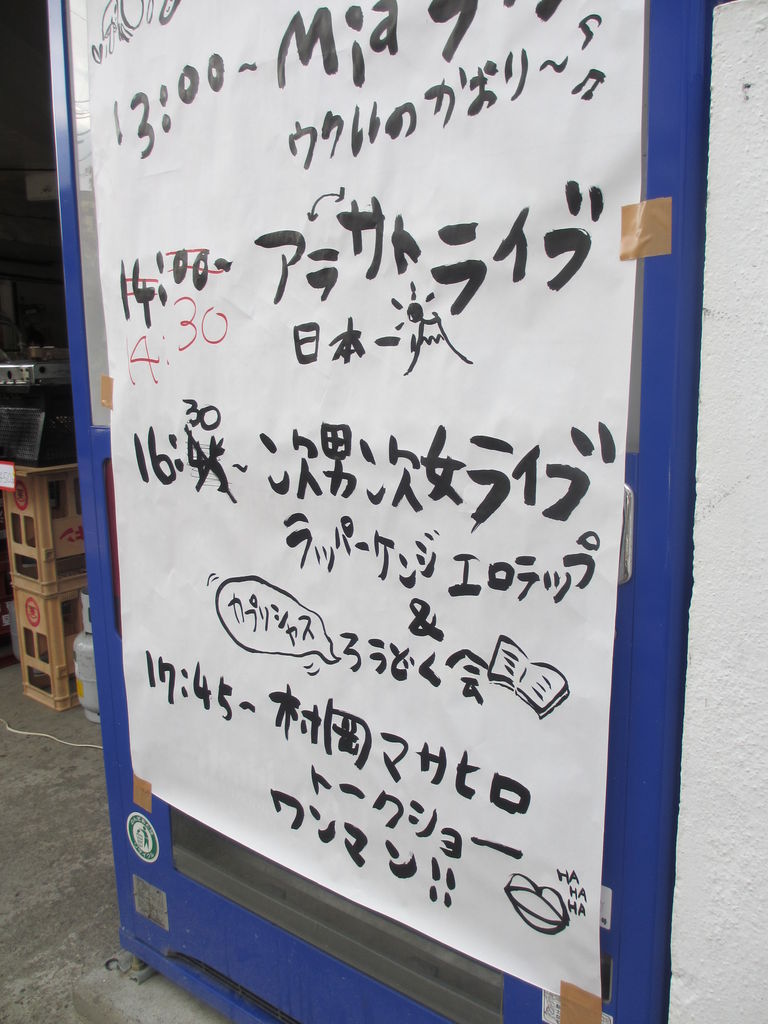 13:00～ Mia ライブ
ウクレレのかおり～♪♫
14:00～ アラサトライブ
14:30
日本一
30
16:～ 次男次女ライブ
ラッパーケンジ エロテップ
&
カプリシャス
ろうどく会
17:45～ 村岡マサヒロ
トークショー
ワンマン!!
HA
HA
HA